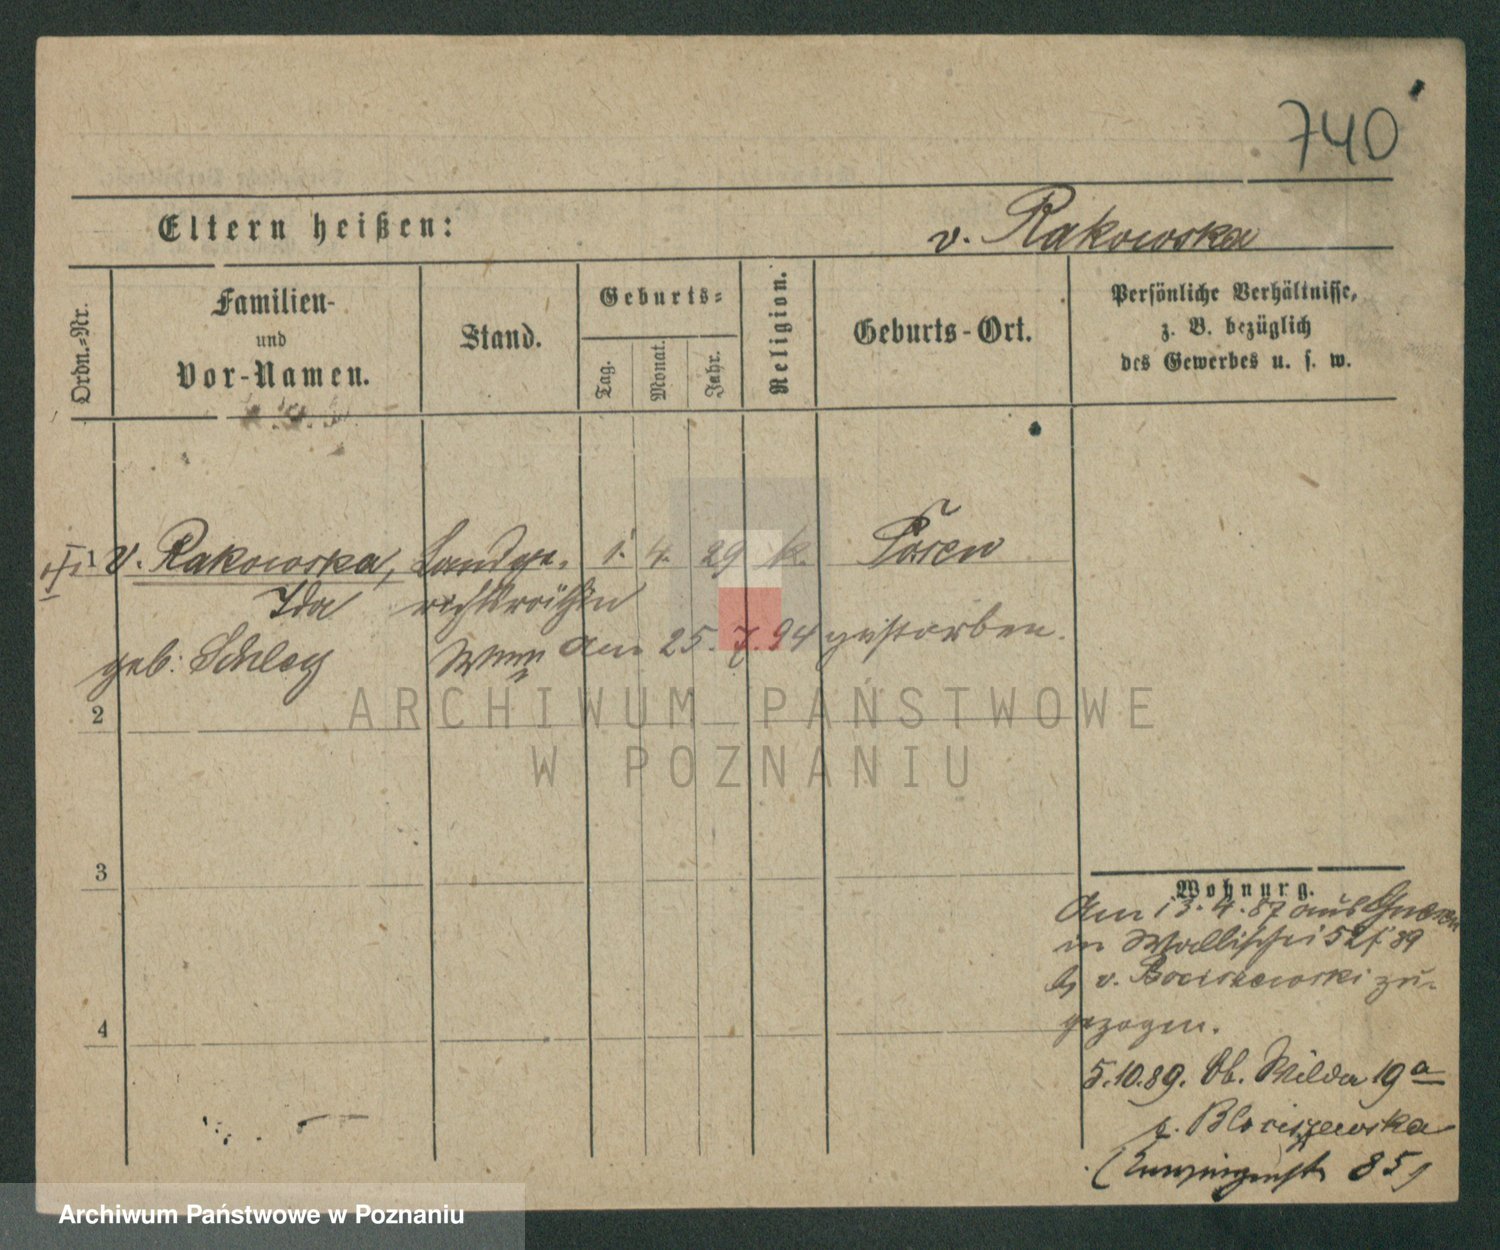 740
Eltern heißen: v. Rakowska
Ordn.-Nr.
Familien-
und
Vor-Namen.
Stand.
Geburts-
Tag.
Monat.
Jahr.
Religion.
Geburts-Ort.
Persönliche Verhältnisse,
z. B. bezüglich
des Gewerbes u. s. w.
1 v. Rakowska, Landge- 1. 4. 29 k. Posen
Ida
geb: Schley
am 25. 7. 94 gestorben.
2
ARCHIWUM PAŃSTWOWE
W POZNANIU
3
4
Wohnung.
Am 13. 4. 87 aus Gnesen
in Wallischei 52/
b v. Bociszewski zu-
gezogen.
5.10.89. Ob. Wilda 19a
b. Blociszewska
85)
Archiwum Państwowe w Poznaniu